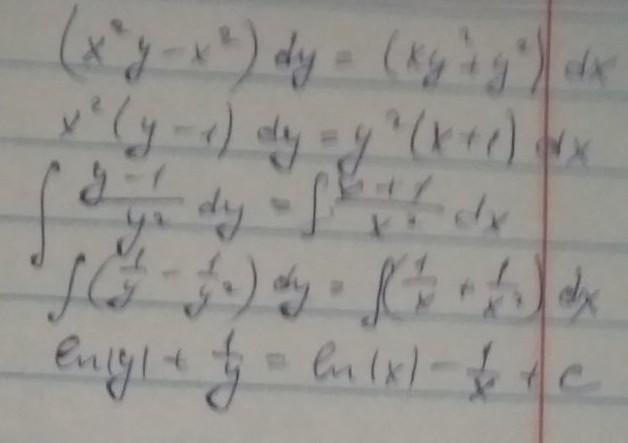 (x²y - x²) dy = (xy² + y²) dx
x²(y - 1) dy = y²(x + 1) dx
∫ (y - 1)/y² dy = ∫ (x + 1)/x² dx
∫ (1/y - 1/y²) dy = ∫ (1/x + 1/x²) dx
ln|y| + 1/y = ln|x| - 1/x + c